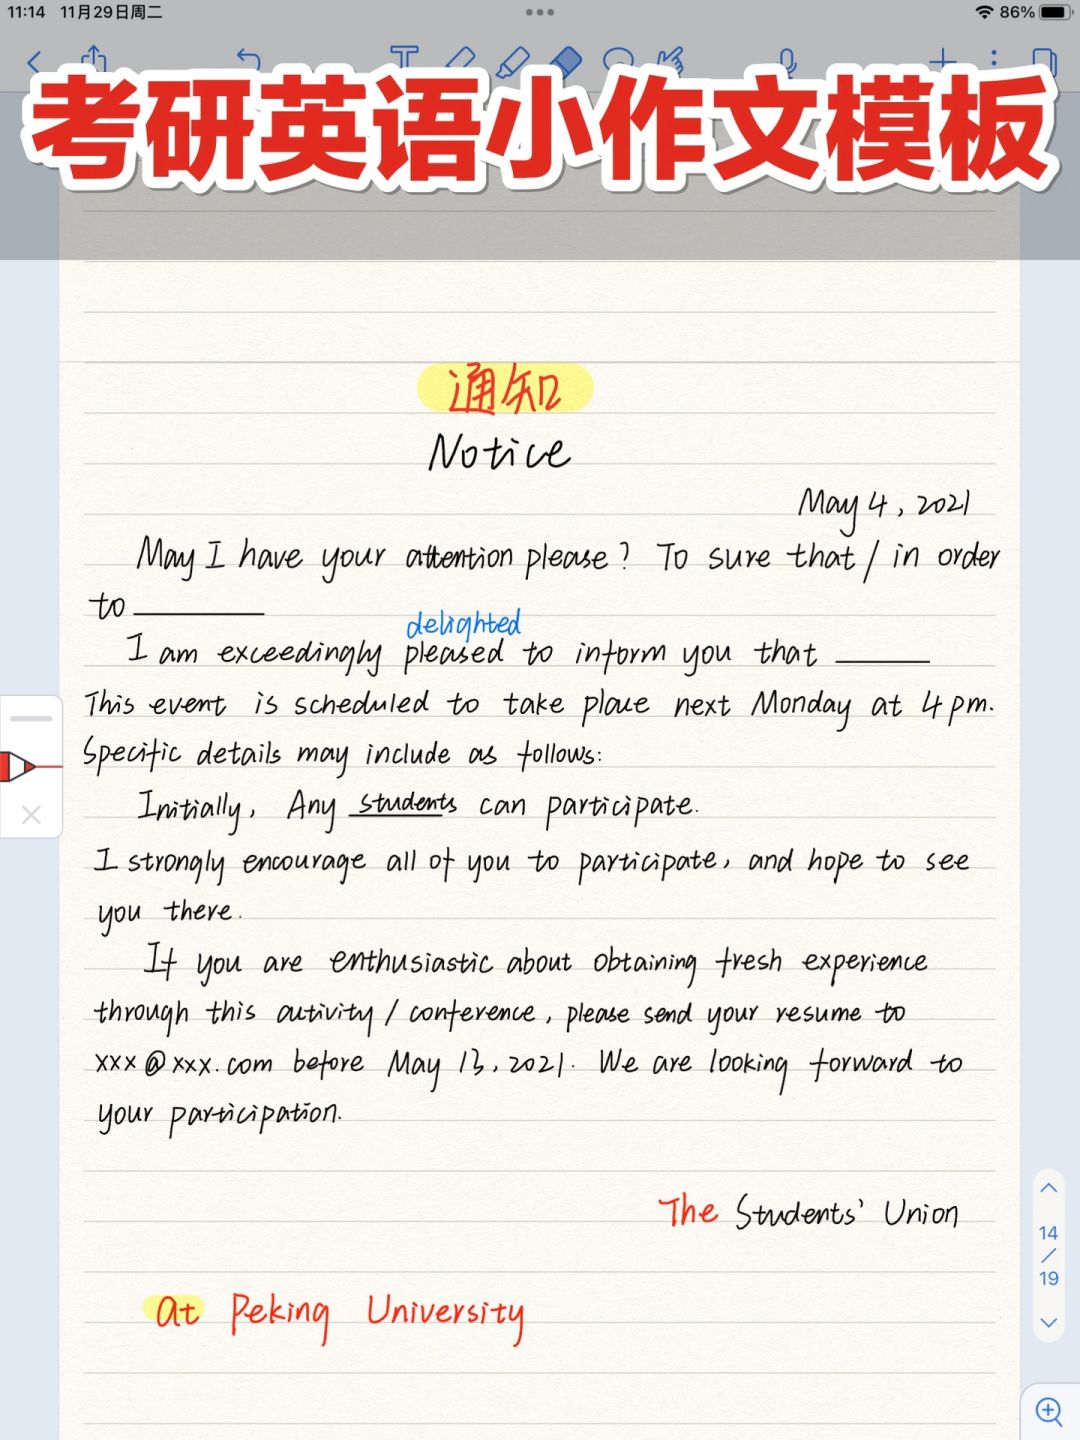 11:14 11月29日周二
86%
考研英语小作文模板
通知
Notice
May 4, 2021
May I have your attention please? To sure that / in order
to
delighted
I am exceedingly pleased to inform you that
This event is scheduled to take place next Monday at 4 pm.
Specific details may include as follows:
Initially, Any students can participate.
I strongly encourage all of you to participate, and hope to see
you there.
If you are enthusiastic about obtaining fresh experience
through this activity / conference, please send your resume to
xxx@xxx.com before May 13, 2021. We are looking forward to
your participation.
The Students' Union
at Peking University
14
/
19